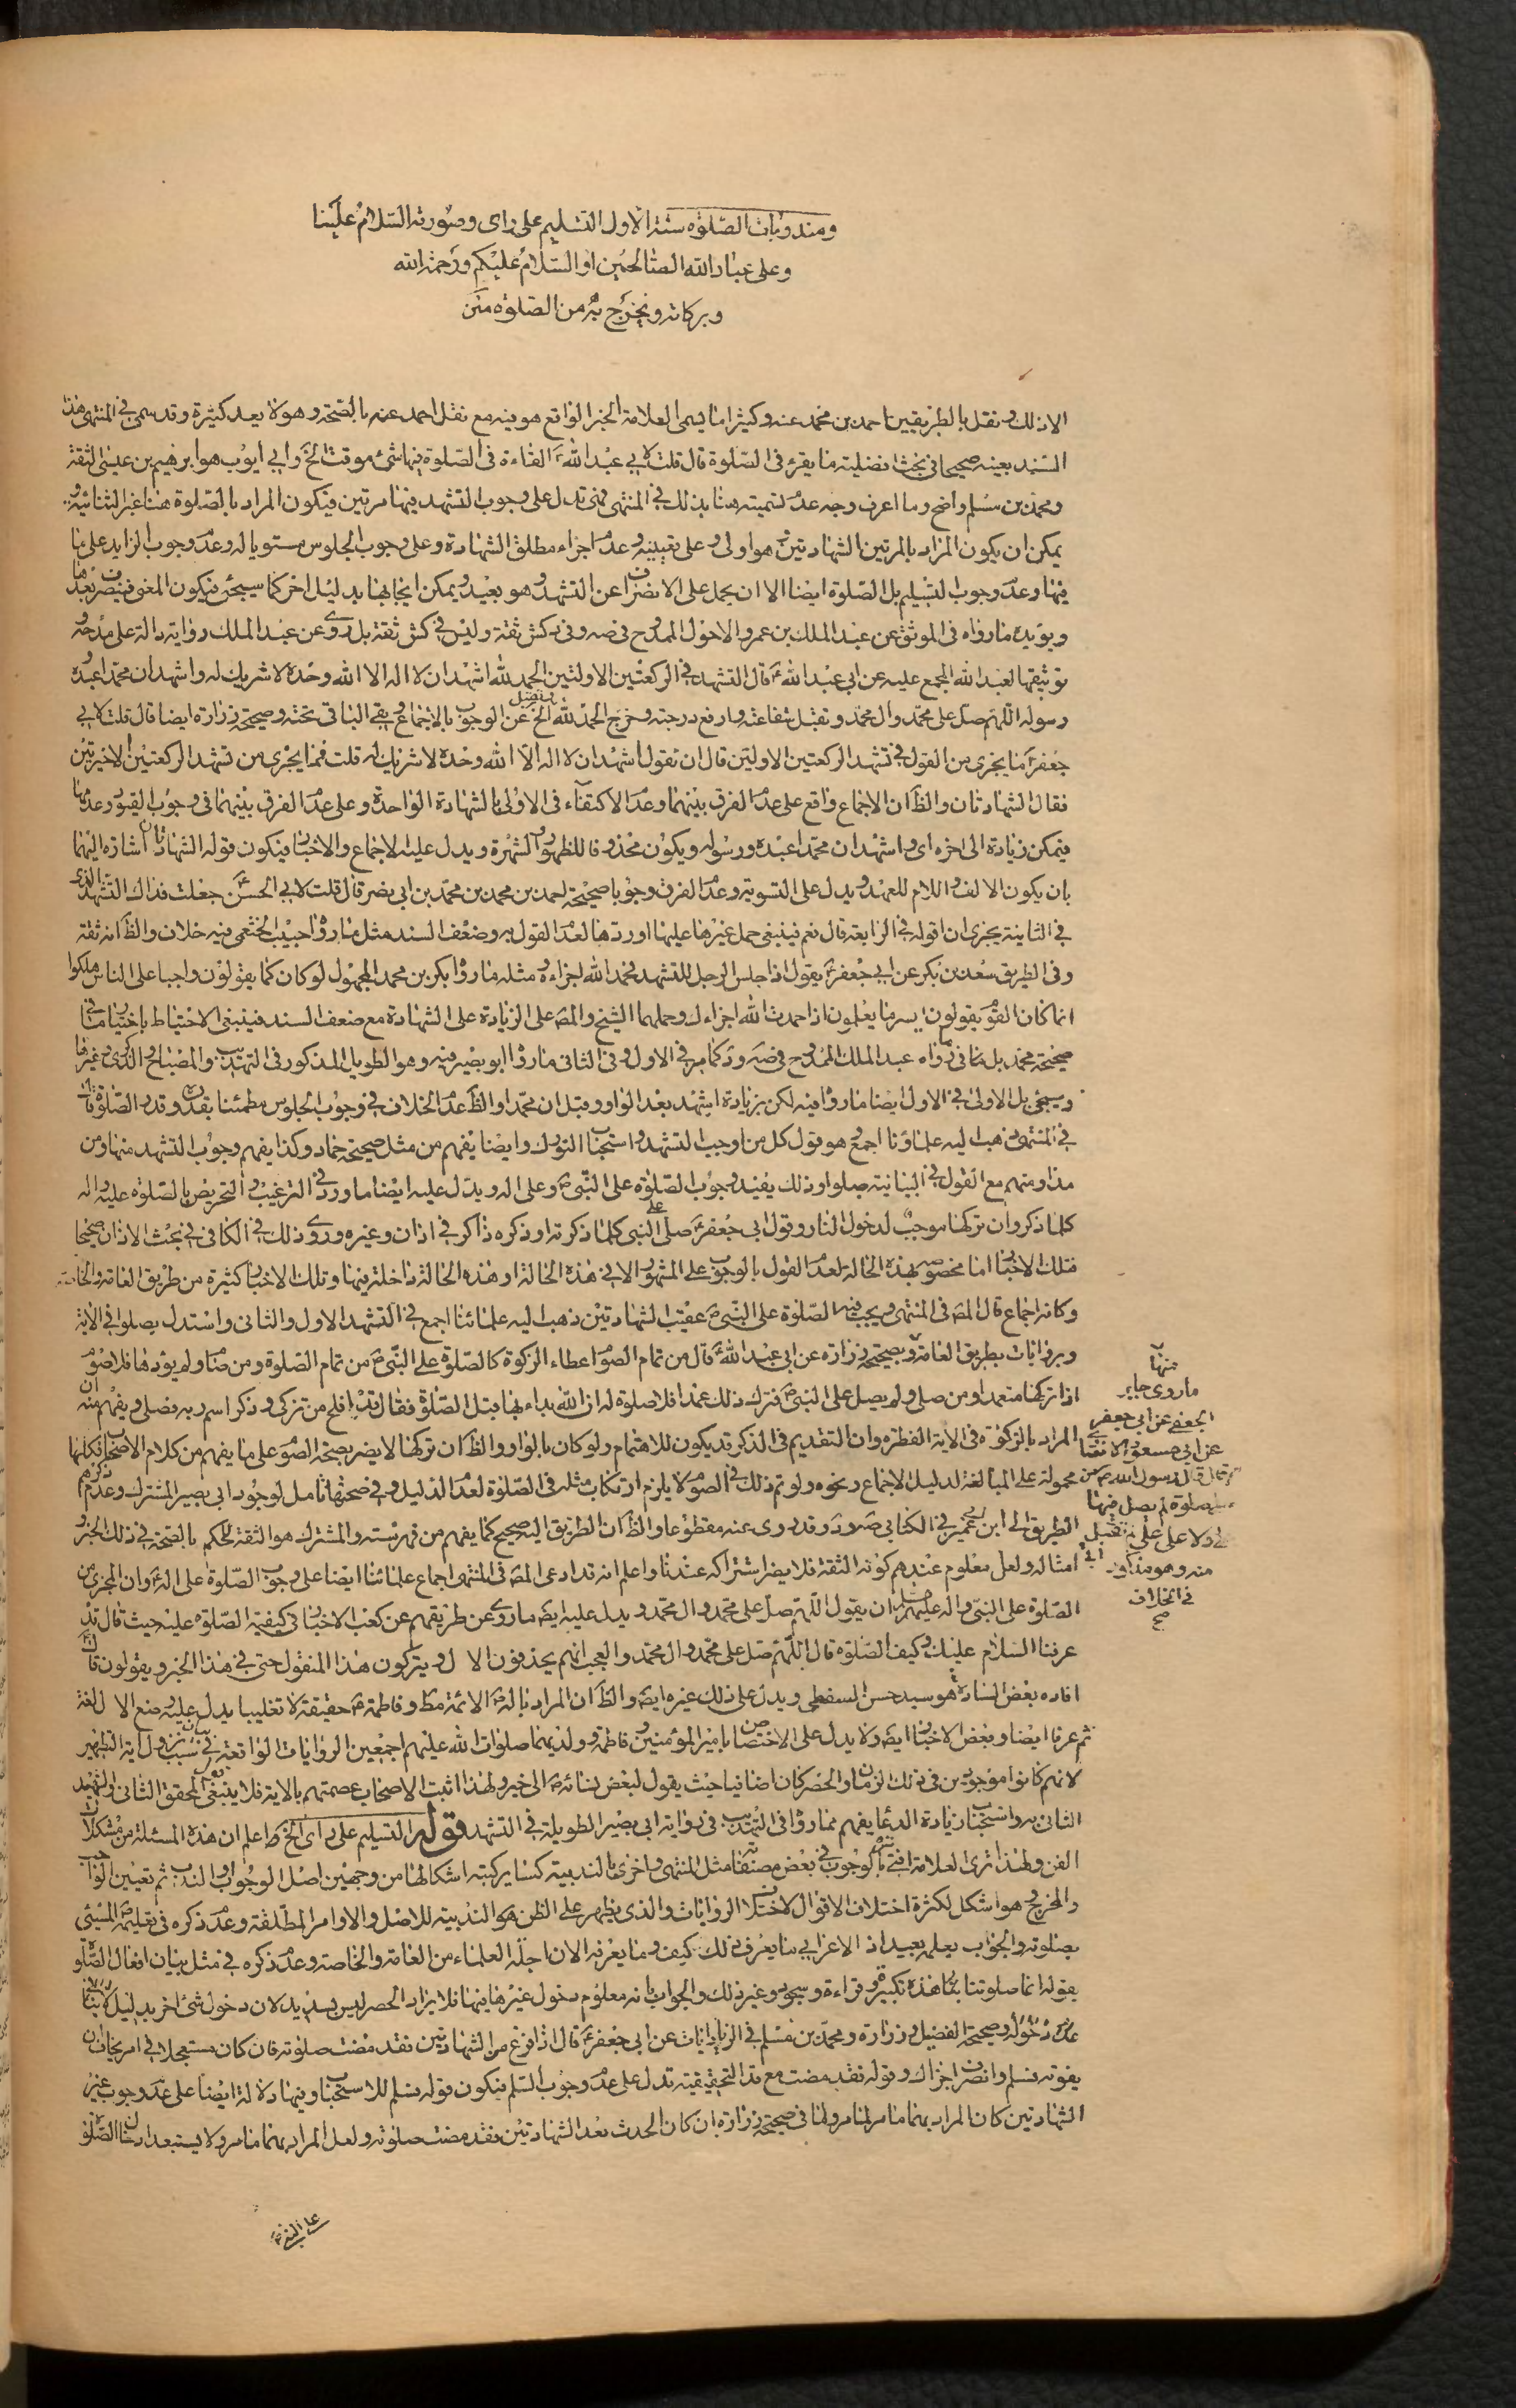 ومندوبات الصّلوة ستة الاول التسليم على راى وصورته السّلام علينا
وعلى عباد الله الصّالحين او السّلام عليكم ورحمة الله
وبركاته ويخرج به من الصّلوة متن
الا ذلك ونقل بالطريقين احمد بن محمد عنه وكثيرا ما يسمى العلامة الخبر الواقع هو فيه مع نقل احمد عنه بالصّحة وهو لا يعد كثيرة وقد سمى فى المنتهى هذا
السّند بعينه صحيحا فى بحث افضلية ما يقرء فى الصّلوة قال قلت لابى عبد الله ع القراءة فى الصّلوة فيها شئ موقت الخ وابى ايوب هو ابرهيم بن عيسى الثقة
ومحمد بن مسلم واضح وما اعرف وجه عدم تسميته هنا بذلك فى المنتهى فهى تدل على وجوب التشهد فيها مرتين فيكون المراد بالصّلوة هنا غير الثنائية و
يمكن ان يكون المراد بالمرتين الشهادتين وهو اولى وعلى تعيينه وعدم اجزاء مطلق الشهادة وعلى وجوب الجلوس مستويا له وعدم وجوب الزايد على ما
فيها وعدم وجوب التسليم بل الصّلوة ايضا الا ان يحمل على الانصراف عن التشهد وهو بعيد ويمكن ايجابها بدليل اخر كما سيجئ فيكون المعنى فينصرف بعدها
ويؤيده ما رواه فى الموثق عن عبد الملك بن عمرو الاحول الممدوح فى صه وفى كش ثقة وليس فى كش ثقة بل روى عن عبد الملك رواية دالة على مدحه و
توثيقها لعبد الله المجمع عليه عن ابى عبد الله ع قال التشهد فى الركعتين الاولتين الحمد لله اشهد ان لا اله الا الله وحده لا شريك له واشهد ان محمدا عبده
ورسوله اللّهم صلّ على محمّد وال محمّد وتقبل شفاعته وارفع درجته وخرج الحمد لله الخ عن الوجوب بالاجماع وبقى الباقى تحته وصحيحة زرارة ايضا قال قلت لابى
جعفر ع ما يجزى من القول فى تشهد الركعتين الاولتين قال ان تقول اشهد ان لا اله الا الله وحده لا شريك له قلت فما يجزى من تشهد الركعتين الاخيرتين
فقال الشهادتان والظ ان الاجماع واقع على عدم الفرق بينهما وعدم الاكتفاء فى الاولى بالشهادة الواحدة وعلى عدم الفرق بينهما فى وجوب القيود وعدمها
فيمكن زيادة الى اخره اى واشهد ان محمّدا عبده ورسوله ويكون محذوفا للظهور والشهرة ويدل عليه الاجماع والاخبار فيكون قوله الشهادتان اشارة اليهما
بان يكون الالف واللام للعهد ويدل على التسوية وعدم الفرق وجوبا صحيحة احمد بن محمد بن ابى نصر قال قلت لابى الحسن ع جعلت فداك التشهد الذى
فى الثانية يجزى ان اقوله فى الرابعة قال نعم فينبغى حمل غيرها عليها اوردها لعدم القول به وضعف السند مثل ما رواه حبيب الخثعمى فيه خلاف والظ انه ثقة
وفى الطريق سعد بن بكر عن ابى جعفر ع يقول اذا جلس الرجل للتشهد فحمد الله اجزاءه ومثله ما رواه بكر بن محمد المجهول لو كان كما يقولون واجبا على الناس هلكوا
انما كان القوم يقولون ايسر ما يعلمون اذا حمدت الله اجزاءك وحملهما الشيخ والمص على الزيادة على الشهادة مع ضعف السند فينبغى الاحتياط باختيار ما فى
صحيحة محمد بل ما فى رواه عبد الملك الممدوح فى صه ود كما مر فى الاول وفى الثانى ما رواه ابو بصير فيه وهو الطويل المذكور فى التهذيب والمصباح والذكرى وغيرها
وسيجئ بل الاولى فى الاول ايضا ما رواه فيه لكن بزيادة اشهد بعد الواو وقبل ان محمّدا والظ عدم الخلاف فى وجوب الجلوس مطمئنا بقدره وقدر الصّلوة قال
فى المنتهى ذهب اليه علماؤنا اجمع وهو قول كل من اوجب التشهد واستحباب التورك وايضا يفهم من مثل صحيحة حماد وكذا يفهم وجوب التشهد منها ومن
مداومتهم مع القول فى البيانية صلوا وذلك يفيد وجوب الصّلوة على النّبى ص وعلى اله ويدل عليه ايضا ما ورد فى الترغيب والتحريض بالصّلوة عليه واله
كلما ذكر وان تركها موجب لدخول النار وقول ابى جعفر ع صلّ على النبى كلما ذكرته او ذكره ذاكر فى اذان وغيره وروى ذلك فى الكافى فى بحث الاذان صحيحا
فتلك الاخبار اما مخصوص بهذه الحالة لعدم القول بالوجوب على المشهور الا فى هذه الحالة او هذه الحالة داخلة فيها وتلك الاخبار كثيرة من طريق العامة والخاصة
وكانه اجماع قال المص فى المنتهى ويجب فيه الصّلوة على النّبى ص عقيب الشهادتين ذهب اليه علمائنا اجمع فى التشهد الاول والثانى واستدل بصلوا فى الاية
وبروايات بطريق العامة وبصحيحة زرارة عن ابى عبد الله ع قال من تمام الصّوم اعطاء الزكوة كالصّلوة على النّبى ص من تمام الصّلوة ومن صام ولم يؤدها فلا صوم
اذا تركها متعمدا ومن صلى ولم يصل على النبى ص فترك ذلك عمدا فلا صلوة له ان الله بداء بها قبل الصّلوة فقال قد افلح من تزكى وذكر اسم ربه فصلى ويفهم منه ان
المراد بالزكوة فى الاية الفطرة وان التقديم فى الذكر قد يكون للاهتمام ولو كان بالواو والظ ان تركها لا يضر بصحة الصوم على ما يفهم من كلام الاصحاب فكانها
محمولة على المبالغة لدليل الاجماع ونحوه ولو تم ذلك فى الصوم لا يلزم ارتكاب مثله فى الصّلوة لعدم الدليل وفى صحتها تامل لوجود ابى بصير المشترك وعدم ذكره
الطريق الى ابن ابى عمير فى الكتابى صه ود وقد روى عنه مقطوعا والظ ان الطريق اليه صحيح كما يفهم من فهرسته والمشترك هو الثقة للحكم بالصّحة فى ذلك الخبر و
امثاله ولعل معلوم عندهم كونه الثقة فلا يضر اشتراكه عندنا واعلم انه قد ادعى المص فى المنتهى اجماع علمائنا ايضا على وجوب الصّلوة على اله ع وان المجزى من
الصّلوة على النبى واله عليهم السلم ان يقول اللّهم صلّ على محمّد وال محمّد ويدل عليه ايض ما روى عن طريقهم عن كعب الاخبار فى كيفية الصّلوة عليه حيث قال قد
عرفنا السلام عليك وكيف الصّلوة قال اللّهم صلّ على محمّد وال محمّد والعجب انهم يحذفون الال ويتركون هذا المنقول حتى فى هذا الخبر ويقولون قال ع
افاده بعض السادة هو سيد حسن السفطى ويدل على ذلك غيره ايض والظ ان المراد باله ص الائمة مط وفاطمة ع حقيقة لا تغليبا يدل عليه وضع الال لغة
ثم عرفا ايضا وبعض الاخبار ايض ولا يدل على الاختصاص بامير المؤمنين وفاطمة وولديهما صلوات الله عليهم اجمعين الروايات الواقعة فى بيان سبب نزول اية التطهير
لانهم كانوا موجودين فى ذلك الزمان والحصر كان اضافيا حيث يقول لبعض نسائه ص الى خير ولهذا اثبت الاصحاب عصمتهم بالاية فلا ينبغى قول المحقق الثانى والشهيد
الثانى به واستحباب زيادة الدعاء يفهم مما رواه فى التهذيب فى رواية ابى بصير الطويلة فى التشهد قوله التسليم على راى الخ ط اعلم ان هذه المسئلة من مشكلات
الفن ولهذا ترى العلامة افتى بالوجوب فى بعض مصنفاته مثل المنتهى واخرى بالندبية كساير كتبه اشكالها من وجهين اصل الوجوب او الندب ثم تعيين الواجب
والمخرج وهو اشكل لكثرة اختلاف الاقوال لاختلاف الروايات والذى يظهر على الظن هو الندبية للاصل والاوامر المطلقة وعدم ذكره فى تعليمه ص المسيئى
بصلوته والجواب بعلمه بعيد اذ الاعرابى ما يعرف ذلك كيف وما يعرفه الان اجلّة العلماء من العامة والخاصة وعدم ذكره فى مثل بيان افعال الصّلوة
بقوله انما صلوتنا هذه تكبيرة وقراءة وسجود وغير ذلك والجواب بانه معلوم دخول غيرها فيها فلا يراد الحصر ليس بسديد لان دخول شئ اخر بدليل لا ينافى
عدم دخوله وصحيحة الفضيل وزرارة ومحمّد بن مسلم فى الزيادات عن ابى جعفر ع قال اذا فرغ من الشهادتين فقد مضت صلوته فان كان مستعجلا فى امر يخاف ان
يفوته فسلم وانصرف اجزاك وقوله فقد مضت مع قد التحقيقية تدل على عدم وجوب السّلم فيكون قوله فسلم للاستحباب وفيها دلالة ايضا على عدم وجوب غير
الشهادتين كان المراد بهما ما مر لما مر ولما فى صحيحة زرارة ان كان الحدث بعد الشهادتين فقد مضت صلوته ولعل المراد بهما ما مر ولا يستبعد ادخال الصّلوة
منها
ما روى جابر
الجعفى عن ابى جعفر
عن ابى مسعود الانصارى
قال قال رسول الله ص من
صلى صلوة لم يصل فيها
على ولا على اهل بيتى لم تقبل
منه وهو مذكور
فى الخلاف
صح
على النبى ص